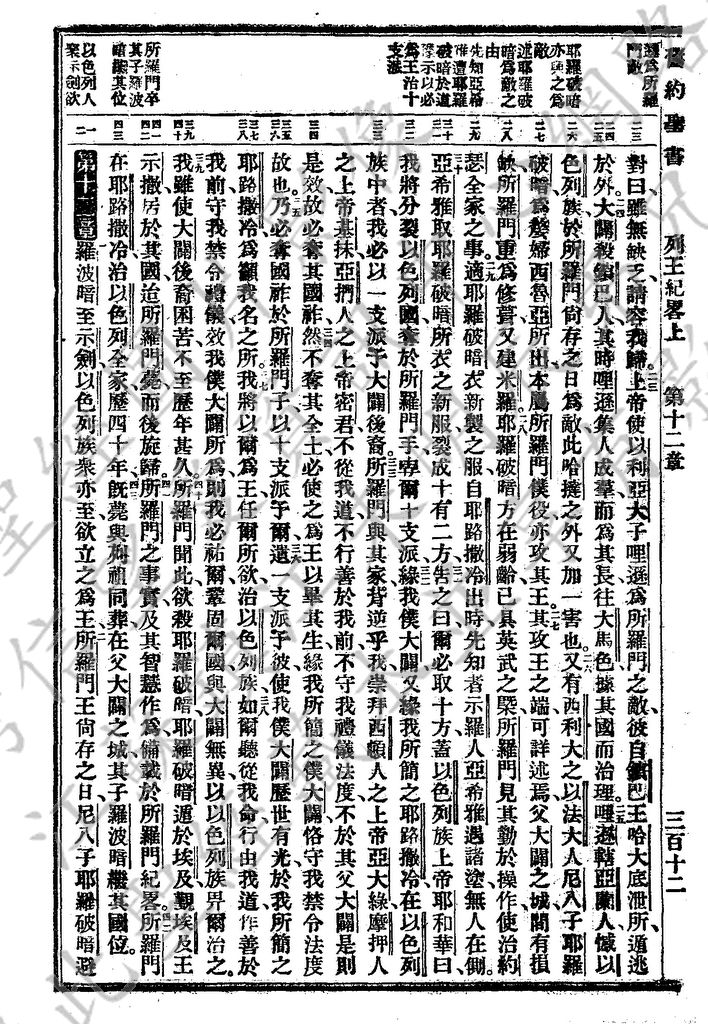 舊約聖書 列王紀畧上 第十二章 三百十二
對曰雖無缺乏請容我歸上帝使以利亞大子哩遜爲所羅門之敵彼自鎖巴王哈大底泄所逋逃
於外大闢殺鎖巴人其時哩遜集人成羣而爲其長往大馬色據其國而治理哩遜轄亞蘭人憾以
色列族於所羅門尙存之日爲敵此哈撻之外又加一害也又有西利大之以法大人尼八子耶羅
破暗爲嫠婦西魯亞所出本屬所羅門僕役亦攻其王其攻王之端可詳述焉父大闢之城間有損
缺所羅門重爲修葺又建米羅耶羅破暗方在弱齡已具英武之槩所羅門見其勤於操作使治約
瑟全家之事適耶羅破暗衣新製之服自耶路撒冷出時先知者示羅人亞希雅遇諸塗無人在側
亞希雅取耶羅破暗所衣之新服裂成十有二方吿之曰爾必取十方蓋以色列族上帝耶和華曰
我將分裂以色列國奪於所羅門手畀爾十支派緣我僕大闢又緣我所簡之耶路撒冷在以色列
族中者我必以一支派予大闢後裔所羅門與其家背逆乎我崇拜西頓人之上帝亞大綠摩押人
之上帝基抹亞捫人之上帝密君不從我道不行善於我前不守我禮儀法度不於其父大闢是則
是效故必奪其國祚然不奪其全土必使之爲王以畢其生緣我所簡之僕大闢恪守我禁令法度
故也乃必奪國祚於所羅門子以十支派予爾遺一支派予彼使我僕大闢歷世有光於我所簡之
耶路撒冷爲籲我名之所我將以爾爲王任爾所欲治以色列族如爾聽從我命行由我道作善於
我前守我禁令禮儀效我僕大闢所爲則我必祐爾鞏固爾國與大闢無異以以色列族畀爾治之
我雖使大闢後裔困苦不至歷年甚久所羅門聞此欲殺耶羅破暗耶羅破暗遁於埃及覲埃及王
示撒居於其國迨所羅門薨而後旋歸所羅門之事實及其智慧作爲備載於所羅門紀畧所羅門
在耶路撒冷治以色列全家歷四十年旣薨與列祖同葬在父大闢之城其子羅波暗繼其國位
第十二章羅波暗至示劍以色列族衆亦至欲立之爲王所羅門王尙存之日尼八子耶羅破暗避